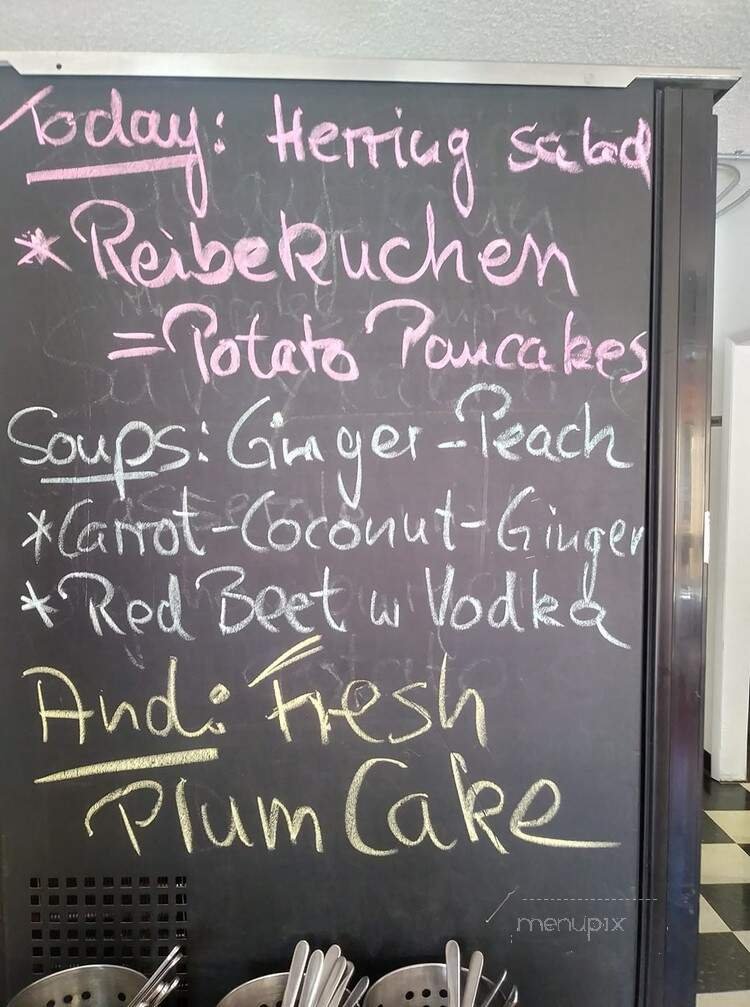 Today: Herring salad
* Reibekuchen
= Potato Pancakes
Soups: Ginger-Peach
* Carrot-Coconut-Ginger
* Red Beet w Vodka
And: Fresh
Plum Cake
menupix